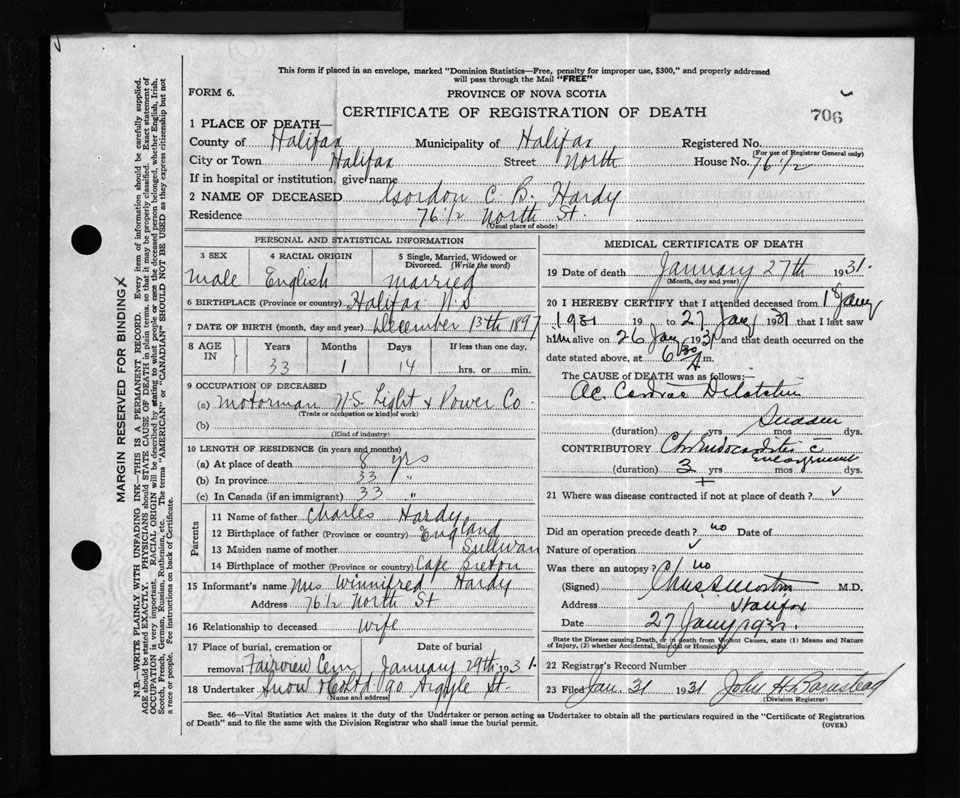 This form if placed in an envelope, marked "Dominion Statistics—Free, penalty for improper use, $300," and properly addressed
will pass through the Mail "FREE"
FORM 6.
PROVINCE OF NOVA SCOTIA
CERTIFICATE OF REGISTRATION OF DEATH
706
1 PLACE OF DEATH—
County of Halifax Municipality of Halifax Registered No.
(For use of Registrar General only)
City or Town Halifax Street North House No. 76 1/2
If in hospital or institution, give name
2 NAME OF DECEASED Gordon C. B. Hardy
Residence 76 1/2 North St.
(Usual place of abode)
PERSONAL AND STATISTICAL INFORMATION
3 SEX 4 RACIAL ORIGIN 5 Single, Married, Widowed or
Divorced. (Write the word)
Male English Married
6 BIRTHPLACE (Province or country) Halifax N.S
7 DATE OF BIRTH (month, day and year) December 13th 1897
8 AGE IN Years Months Days If less than one day.
33 1 14 hrs. or min.
9 OCCUPATION OF DECEASED
(a) Motorman N.S. Light & Power Co.
(Trade of occupation or kind of work)
(b)
(Kind of industry)
10 LENGTH OF RESIDENCE (in years and months)
(a) At place of death 8 yrs
(b) In province 33 "
(c) In Canada (if an immigrant) 33 "
Parents
11 Name of father Charles Hardy
12 Birthplace of father (Province or country) England
13 Maiden name of mother Sullivan
14 Birthplace of mother (Province or country) Cape Breton
15 Informant's name Mrs Winnifred Hardy
Address 76 1/2 North St
16 Relationship to deceased wife
17 Place of burial, cremation or Date of burial
removal Fairview Cem January 29th 1931.
18 Undertaker Snow & Co Ltd 90 Argyle St.
(Name and address)
MEDICAL CERTIFICATE OF DEATH
19 Date of death January 27th 1931.
(Month, day and year)
20 I HEREBY CERTIFY that I attended deceased from 1 Jany
1931 19 to 27 Jany 1931 that I last saw
him alive on 26 Jany 1931 and that death occurred on the
date stated above, at 6 30 A m.
The CAUSE OF DEATH was as follows:—
Ac. Cardiac Dilatation
Sudden
(duration) yrs mos dys.
CONTRIBUTORY Ch Endocarditis c
Enlargement
(duration) 3 yrs mos dys.
+
21 Where was disease contracted if not at place of death?
Did an operation precede death? no Date of
Nature of operation
Was there an autopsy? no
(Signed) M.D.
Address Halifax
Date 27 Jany 1931.
State the Disease causing Death, or in death from Violent Causes, state (1) Means and Nature
of Injury, (2) whether Accidental, Suicidal or Homicidal.
22 Registrar's Record Number
23 Filed Jan. 31 1931 John H Barnstead
(Division Registrar)
Sec. 46—Vital Statistics Act makes it the duty of the Undertaker or person acting as Undertaker to obtain all the particulars required in the "Certificate of Registration
of Death" and to file the same with the Division Registrar who shall issue the burial permit.
(OVER)
MARGIN RESERVED FOR BINDING
N.B.—WRITE PLAINLY WITH UNFADING INK—THIS IS A PERMANENT RECORD. Every item of information should be carefully supplied.
AGE should be stated EXACTLY. PHYSICIANS should STATE CAUSE OF DEATH in plain terms, so that it may be properly classified. Exact statement of
OCCUPATION is very important. RACIAL ORIGIN will be described by stating to what people or race the deceased person belonged, whether English, Irish,
Scotch, French, German, Russian, Ruthenian, etc. The terms "AMERICAN" or "CANADIAN" SHOULD NOT BE USED as they express citizenship but not
a race or people. See instructions on back of Certificate.